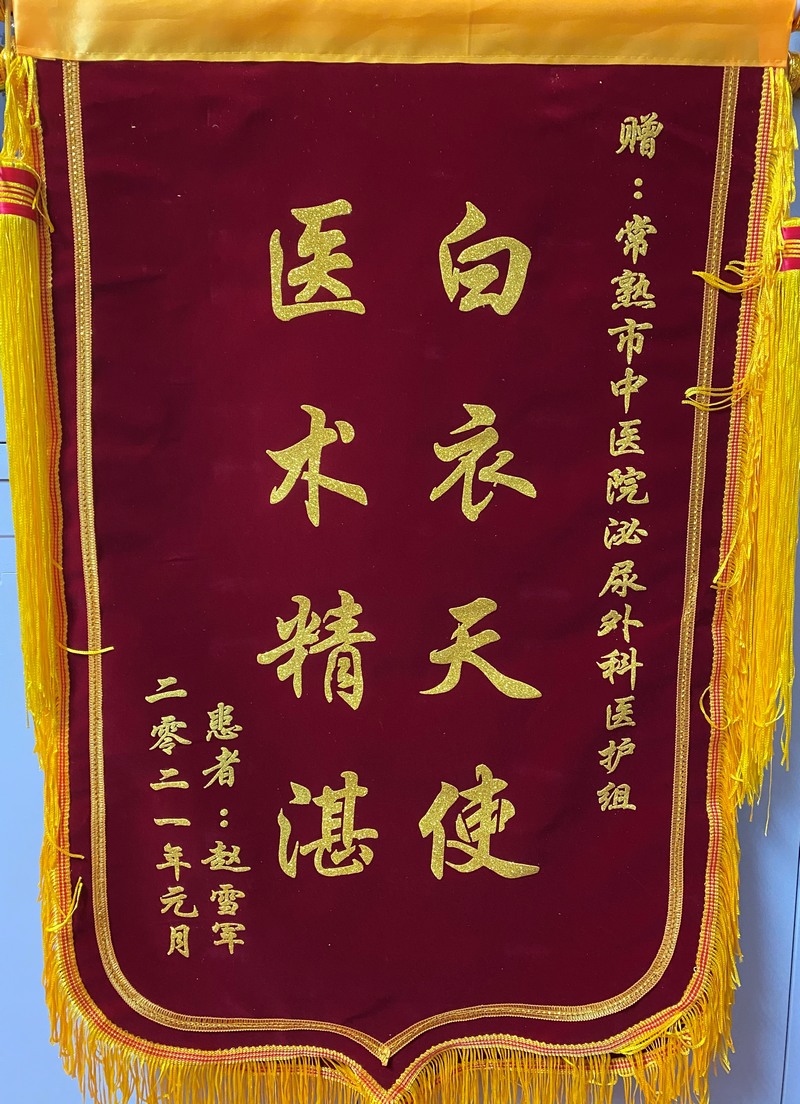 赠：常熟市中医院泌尿外科医护组
白衣天使
医术精湛
患者：赵雪军
二零二一年元月